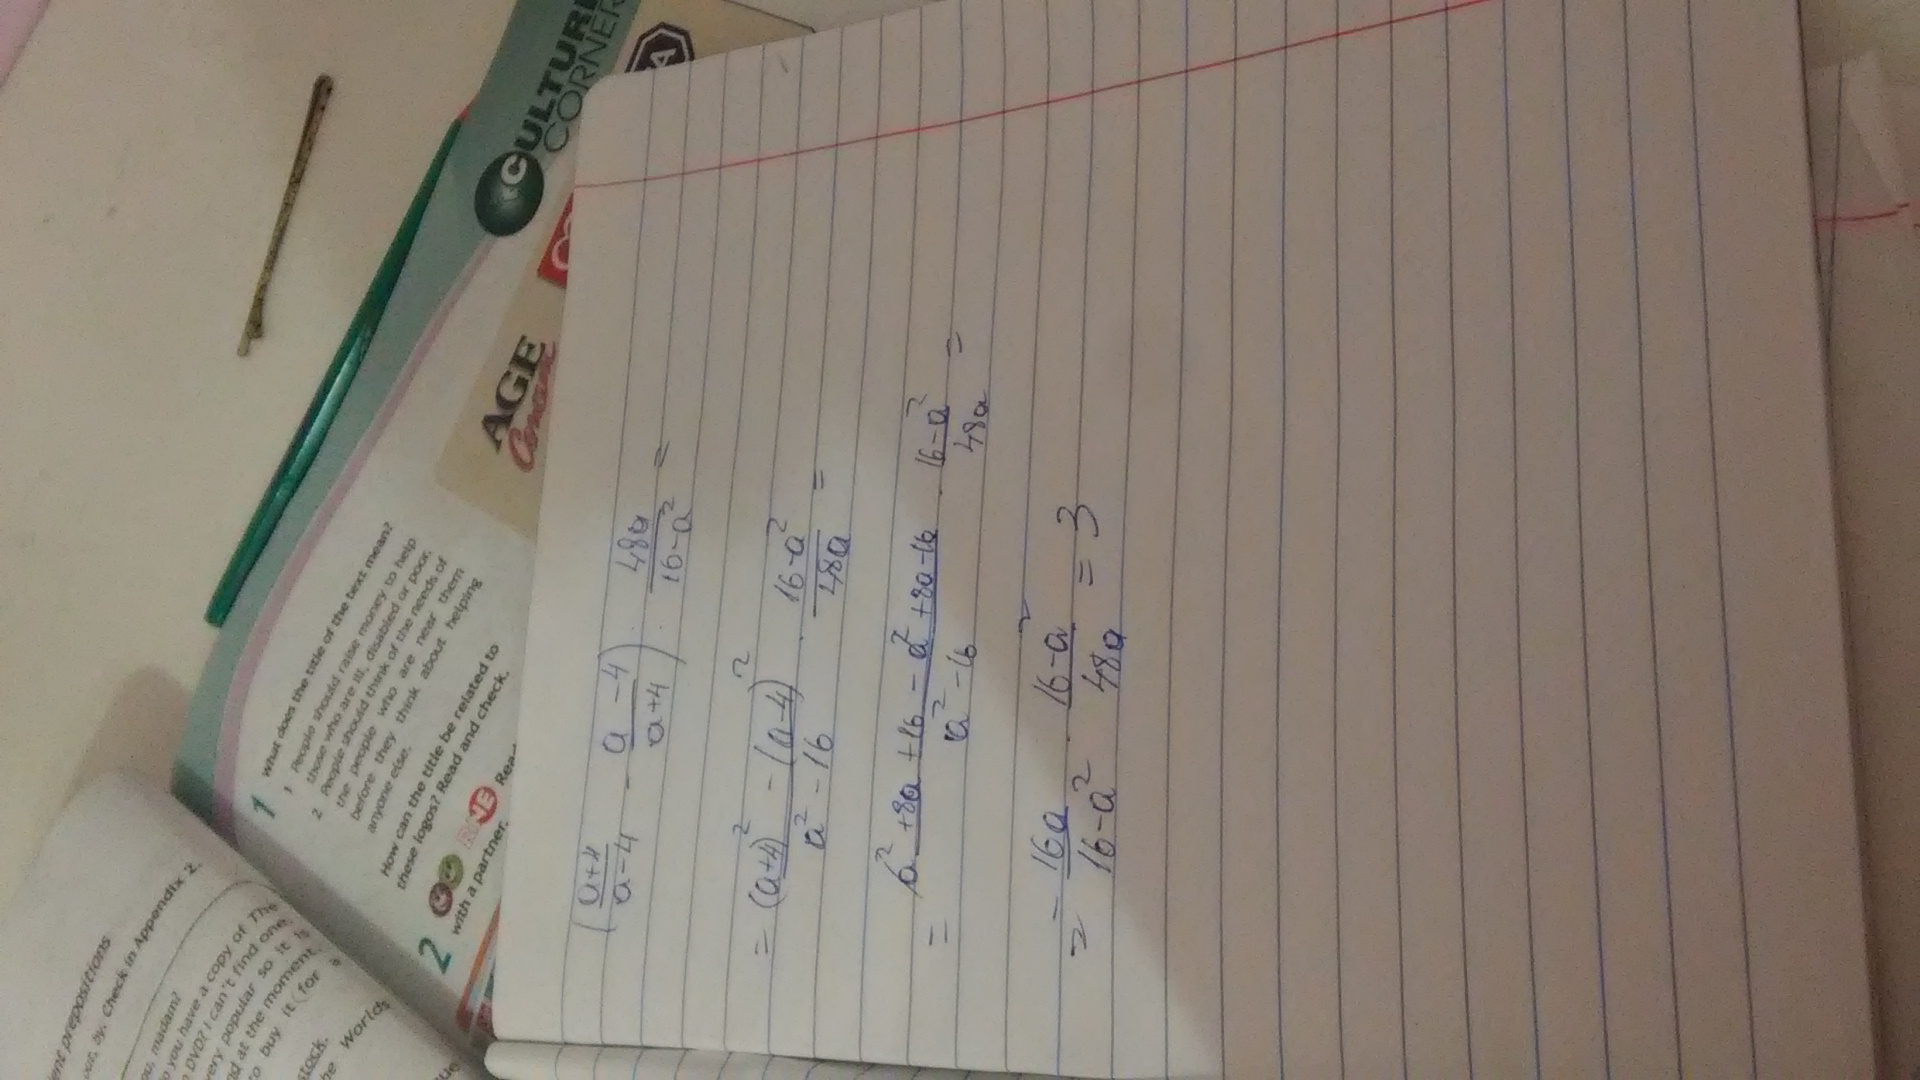 ent prepositions
our, by. Check in Appendix 2.
madam?
you have a copy of The
DVD? I can't find one.
very popular so it is
at the moment.
to buy it (for a
stock.
Worlds
1 What does the title of the text mean?
1 People should raise money to help
those who are ill, disabled or poor.
2 People should think of the needs of
the people who are near them
before they think about helping
anyone else.
2 How can the title be related to
these logos? Read and check.
with a partner.
CULTURE
CORNER
AGE
Concern
A
(a+4/a-4 - a-4/a+4) · 48a/16-a² =
= (a+4)² - (a-4)²/a²-16 · 16-a²/48a =
= a²+8a+16-a²+8a-16/a²-16 · 16-a²/48a =
= -16a/16-a² · 16-a²/48a = 3